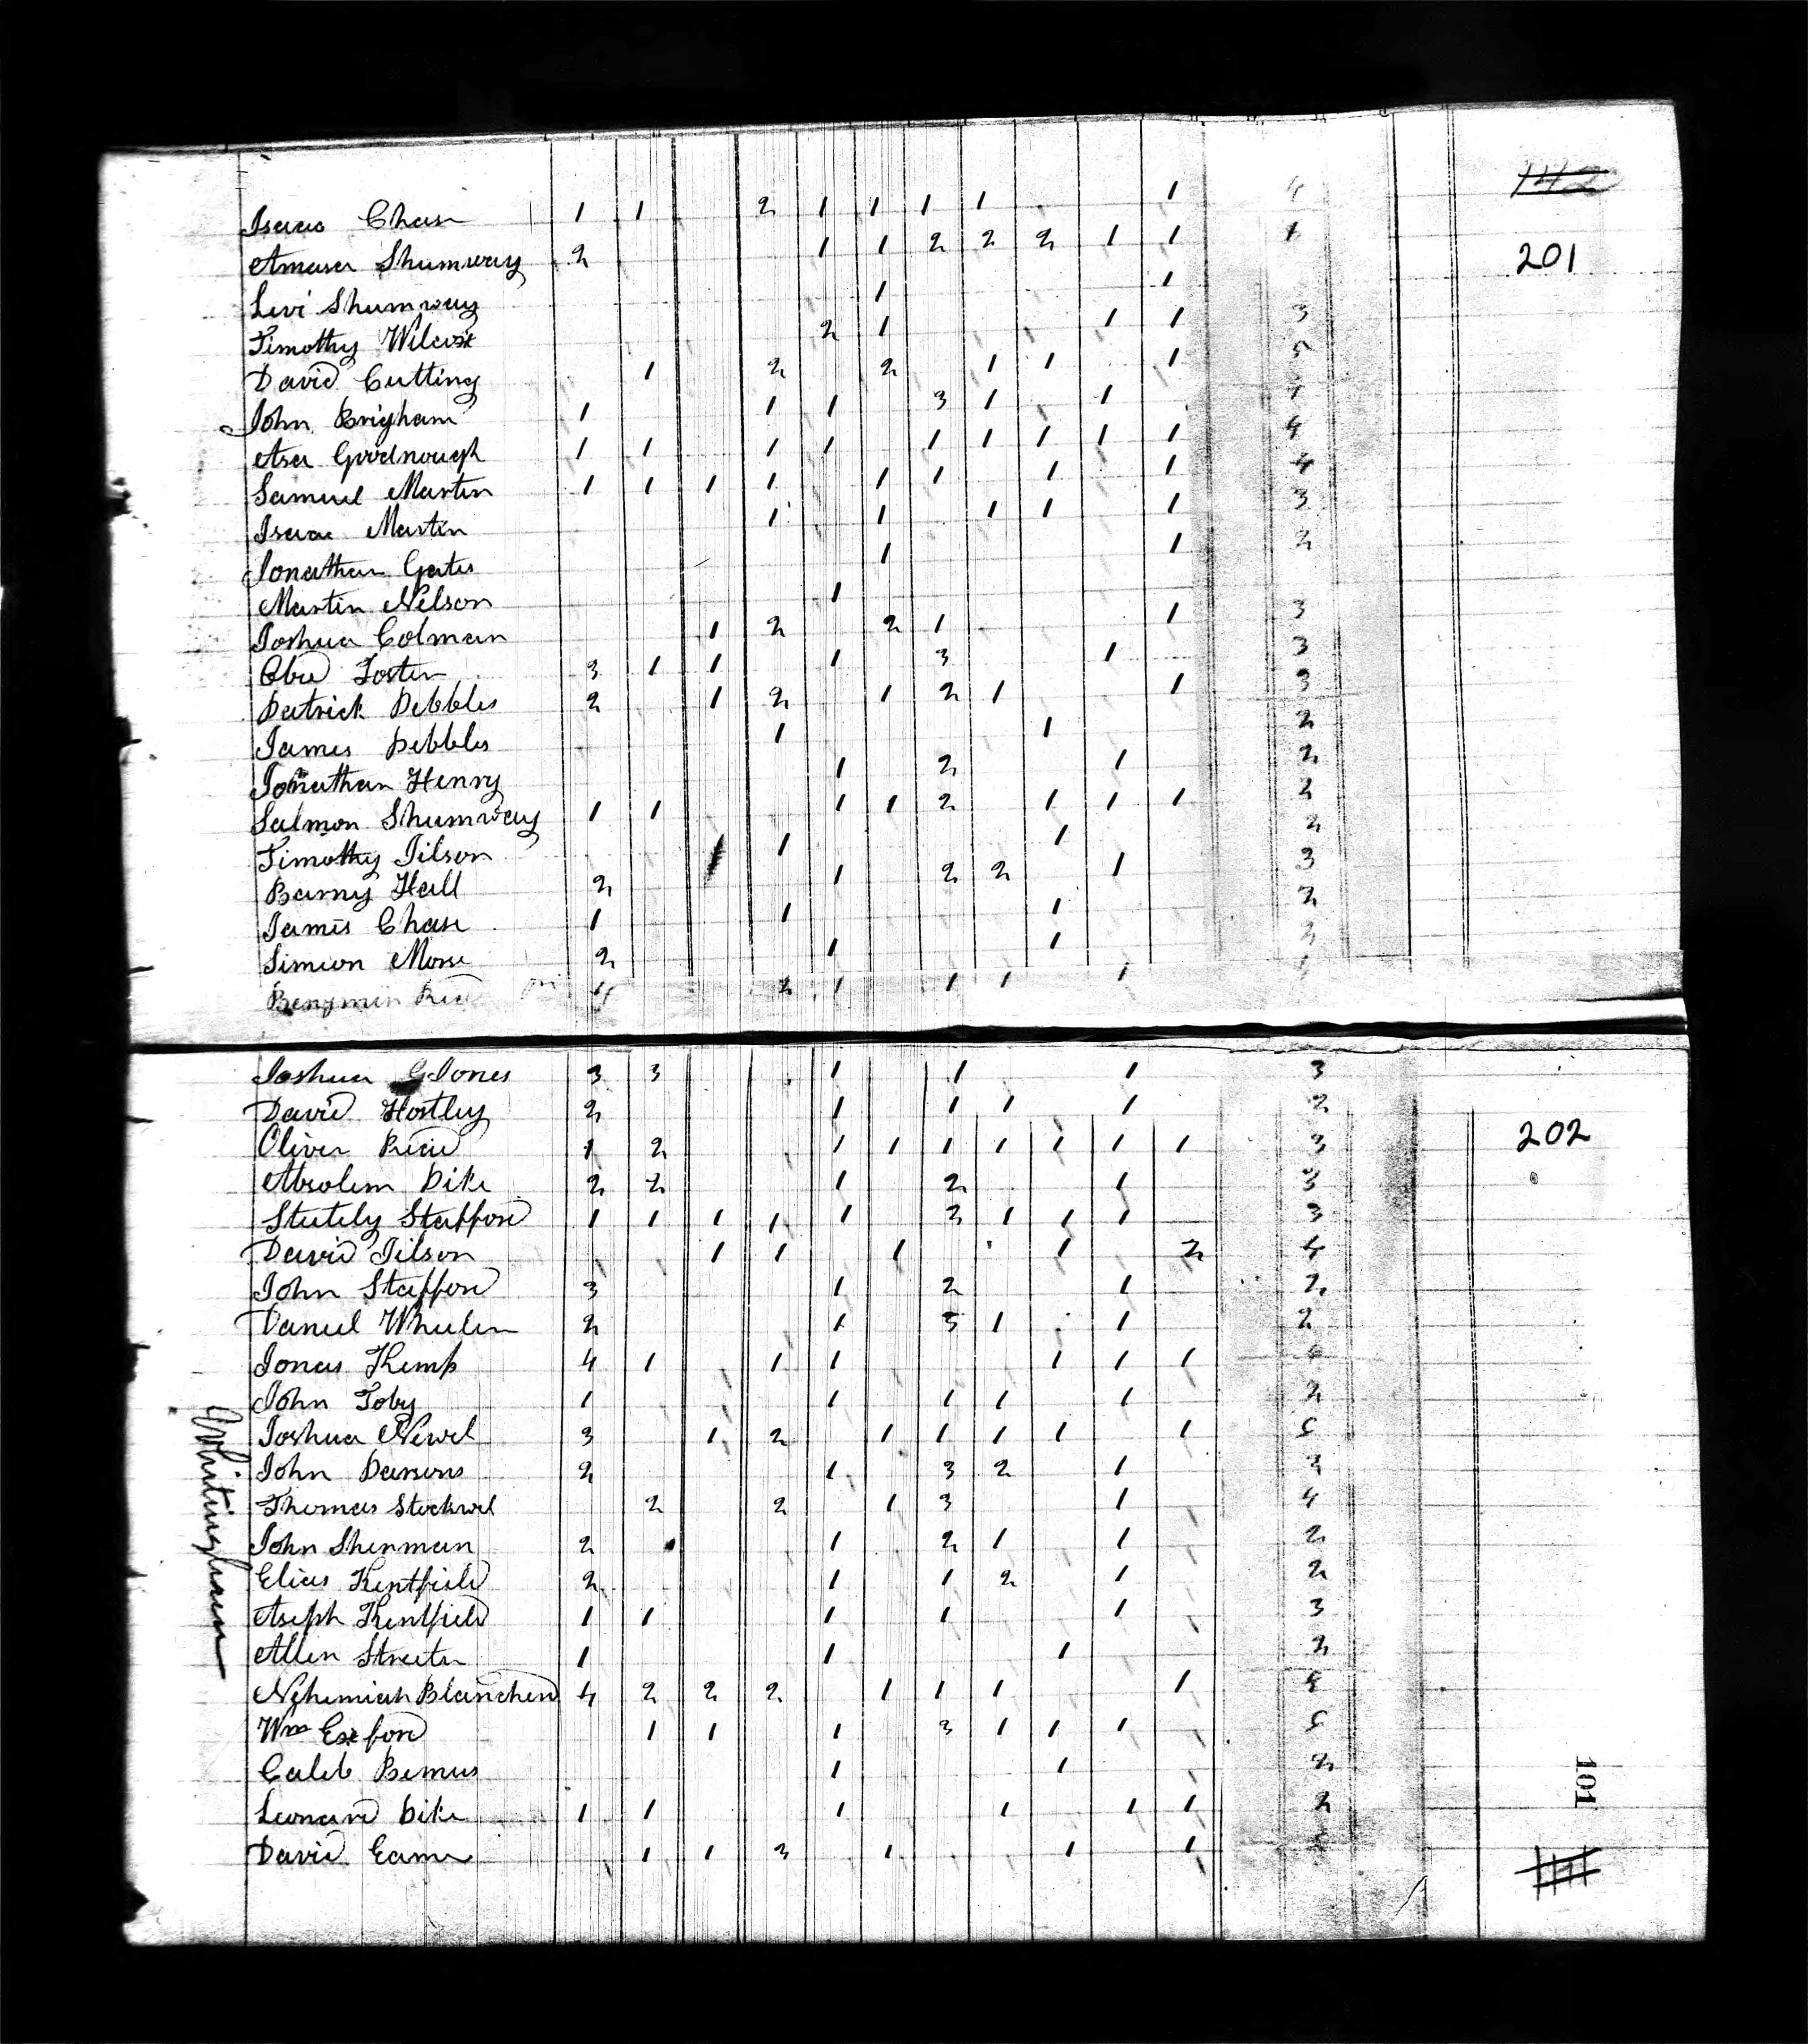 142
Isaac Chase 1 1 2 1 1 1 1 1 4
201
Amasa Shumway 2 1 1 2 2 2 1 1 1
Levi Shumway 1 1
Timothy Wilcox 2 1 1 1 3
David Cutting 1 2 2 1 1 1 5
John Brigham 1 1 1 3 1 1
Asa Goodnough 1 1 1 1 1 1 1 1 1 4
Samuel Martin 1 1 1 1 1 1 1 1 4
Isaac Martin 1 1 1 1 1 3
Jonathan Gates 1 1 2
Martin Nelson 1
Joshua Colman 1 2 2 1 1 3
Obed Foster 3 1 1 1 3 1 3
Patrick Pebbles 2 1 2 1 2 1 1 3
James Pebbles 1 1 2
Jonathan Henry 1 2 1 2
Salmon Shumway 1 1 1 1 2 1 1 1 2
Timothy Jilson 1 1 2
Barny Hall 2 1 2 2 1 3
James Chase 1 1 1 2
Simeon Morse 2 1 1 2
Benjmin 4 2 1 1 1 1
Joshua G Jones 3 3 1 1 1 3
David Hostley 2 1 1 1 1 2
202
Oliver 1 2 1 1 1 1 1 1 1 3
Absolem Dike 2 2 1 2 1 3
Stutely Stafford 1 1 1 1 1 2 1 1 1 3
David Jilson 1 1 1 1 2 4
John Stafford 3 1 2 1 2
Daniel Wheeler 2 1 3 1 1 2
Jonas Kemp 4 1 1 1 1 1 1
John Toby 1 1 1 1 1 2
Joshua Newel 3 1 2 1 1 1 1 1 5
John Parsons 2 1 3 2 1 3
Thomas Stockwel 2 2 1 3 1 4
John Sherman 2 1 2 1 1 2
Elias Kentfield 2 1 1 2 1 2
Aseph Kentfield 1 1 1 1 1 3
Allen Streeter 1 1 1 2
Nehemiah Blancherd 4 2 2 2 1 1 1 1 4
Wm Exford 1 1 1 3 1 1 1 5
Caleb Bemus 1 1 2
Leonard Dike 1 1 1 1 1 1 2
David Eames 1 1 3 1 1 1
Whitingham
101